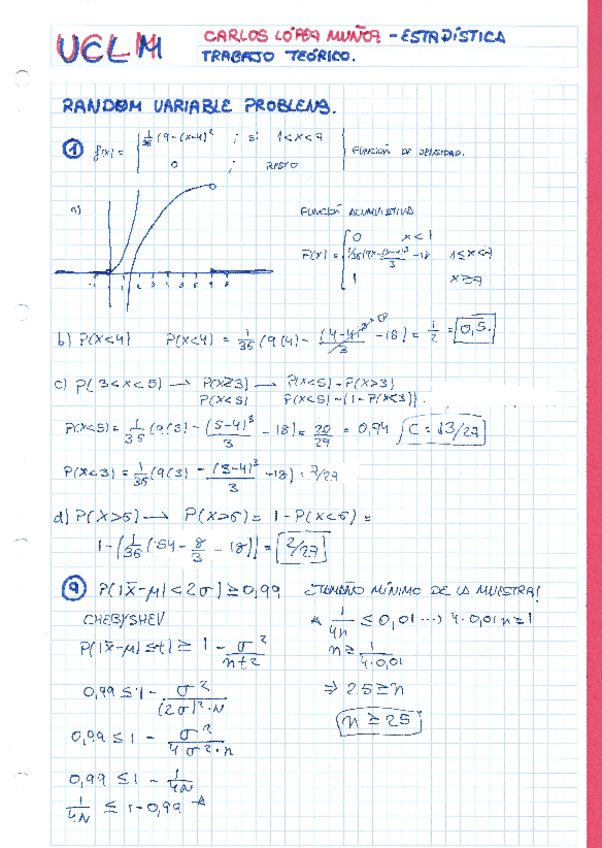 UCLM
CARLOS LÓPEZ MUÑOZ - ESTADÍSTICA
TRABAJO TEÓRICO.
RANDOM VARIABLE PROBLEMS.
1 f(x) = 1/36 (9-(x-4)² ; si 1<x<7
0 ; RESTO
FUNCIÓN DE DENSIDAD.
a)
-1 1 2 3 4 5 6 7 8
FUNCIÓN ACUMULATIVA
F(x) = 0 x<1
1/36(9x-(x-4)³/3 -18 1≤x<7
1 x≥7
b) P(X<4) P(X<4) = 1/36 (9(4) - (4-4)³/3 - 18) = 1/2 = 0,5.
c) P(3<x<5) → P(X≥3) → P(X<5) - P(X>3)
P(X<5) P(X<5) - (1-P(X<3)).
P(X<5) = 1/36 (9(5) - (5-4)³/3 - 18) = 20/27 = 0,74 C = 13/27
P(X<3) = 1/36 (9(3) - (3-4)³/3 - 18) = 7/27
d) P(X>6) → P(X>6) = 1 - P(X<6) =
1 - (1/36 (54 - 8/3 - 18)) = 2/27
9 P(|x̄-μ| < 2σ) ≥ 0,99 ¿TAMAÑO MÍNIMO DE LA MUESTRA?
CHEBYSHEV
P(|x̄-μ| ≤ t) ≥ 1 - σ²/nt²
0,99 ≤ 1 - σ²/(2σ)²·N
0,99 ≤ 1 - σ²/4σ²·n
0,99 ≤ 1 - 1/4N
1/4N ≤ 1 - 0,99
1/4n ≤ 0,01 ⋯→ 4·0,01n ≥ 1
n ≥ 1/4·0,01
⇒ 25 ≥ n
n ≥ 25